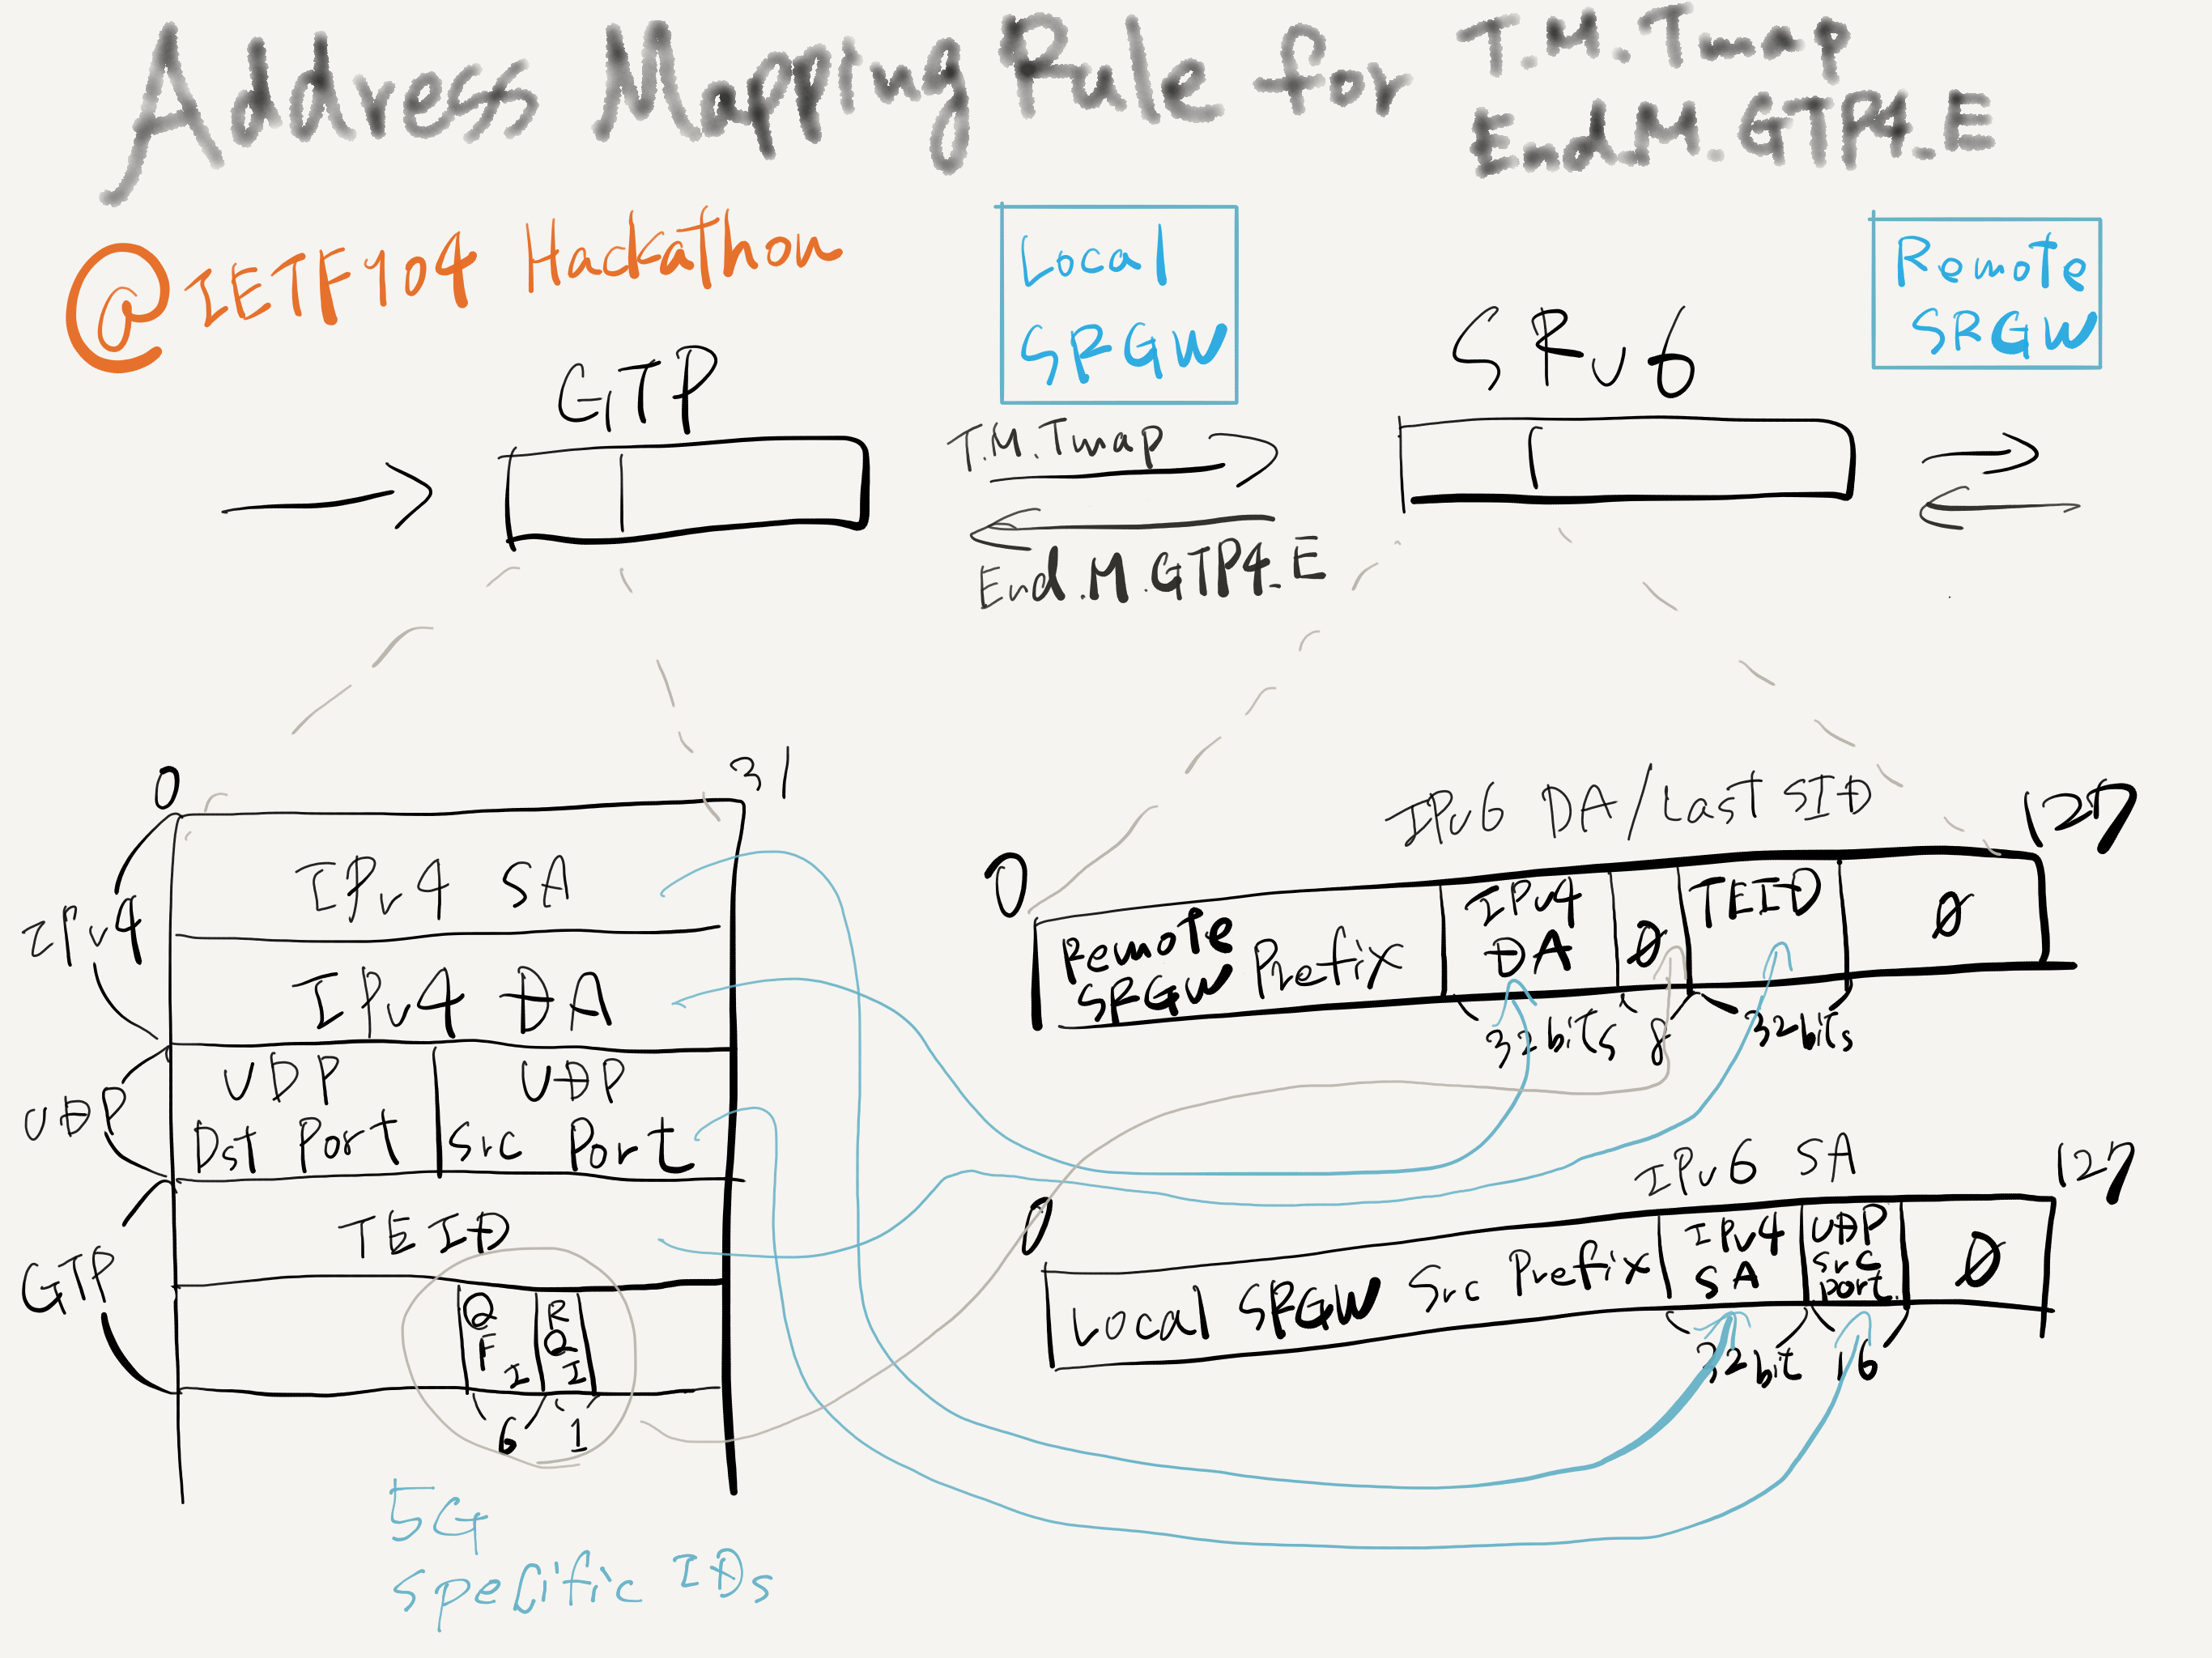 Address Mapping Rule for T.M.Tmap
End.M.GTP4.E
@IETF104 Hackathon
Local
SRGW
Remote
SRGW
GTP
SRv6
T.M.Tmap
End.M.GTP4.E
0
31
IPv4
IPv4 SA
IPv4 DA
UDP
UDP
Dst Port
UDP
Src Port
GTP
TEID
QFI
RQI
6
1
5G
specific IDs
IPv6 DA/Last SID
0
127
Remote
SRGW Prefix
IPv4
DA
0
TEID
0
32bits
8
32bits
IPv6 SA
0
127
Local SRGW Src Prefix
IPv4
SA
UDP
Src
port
0
32bit
16